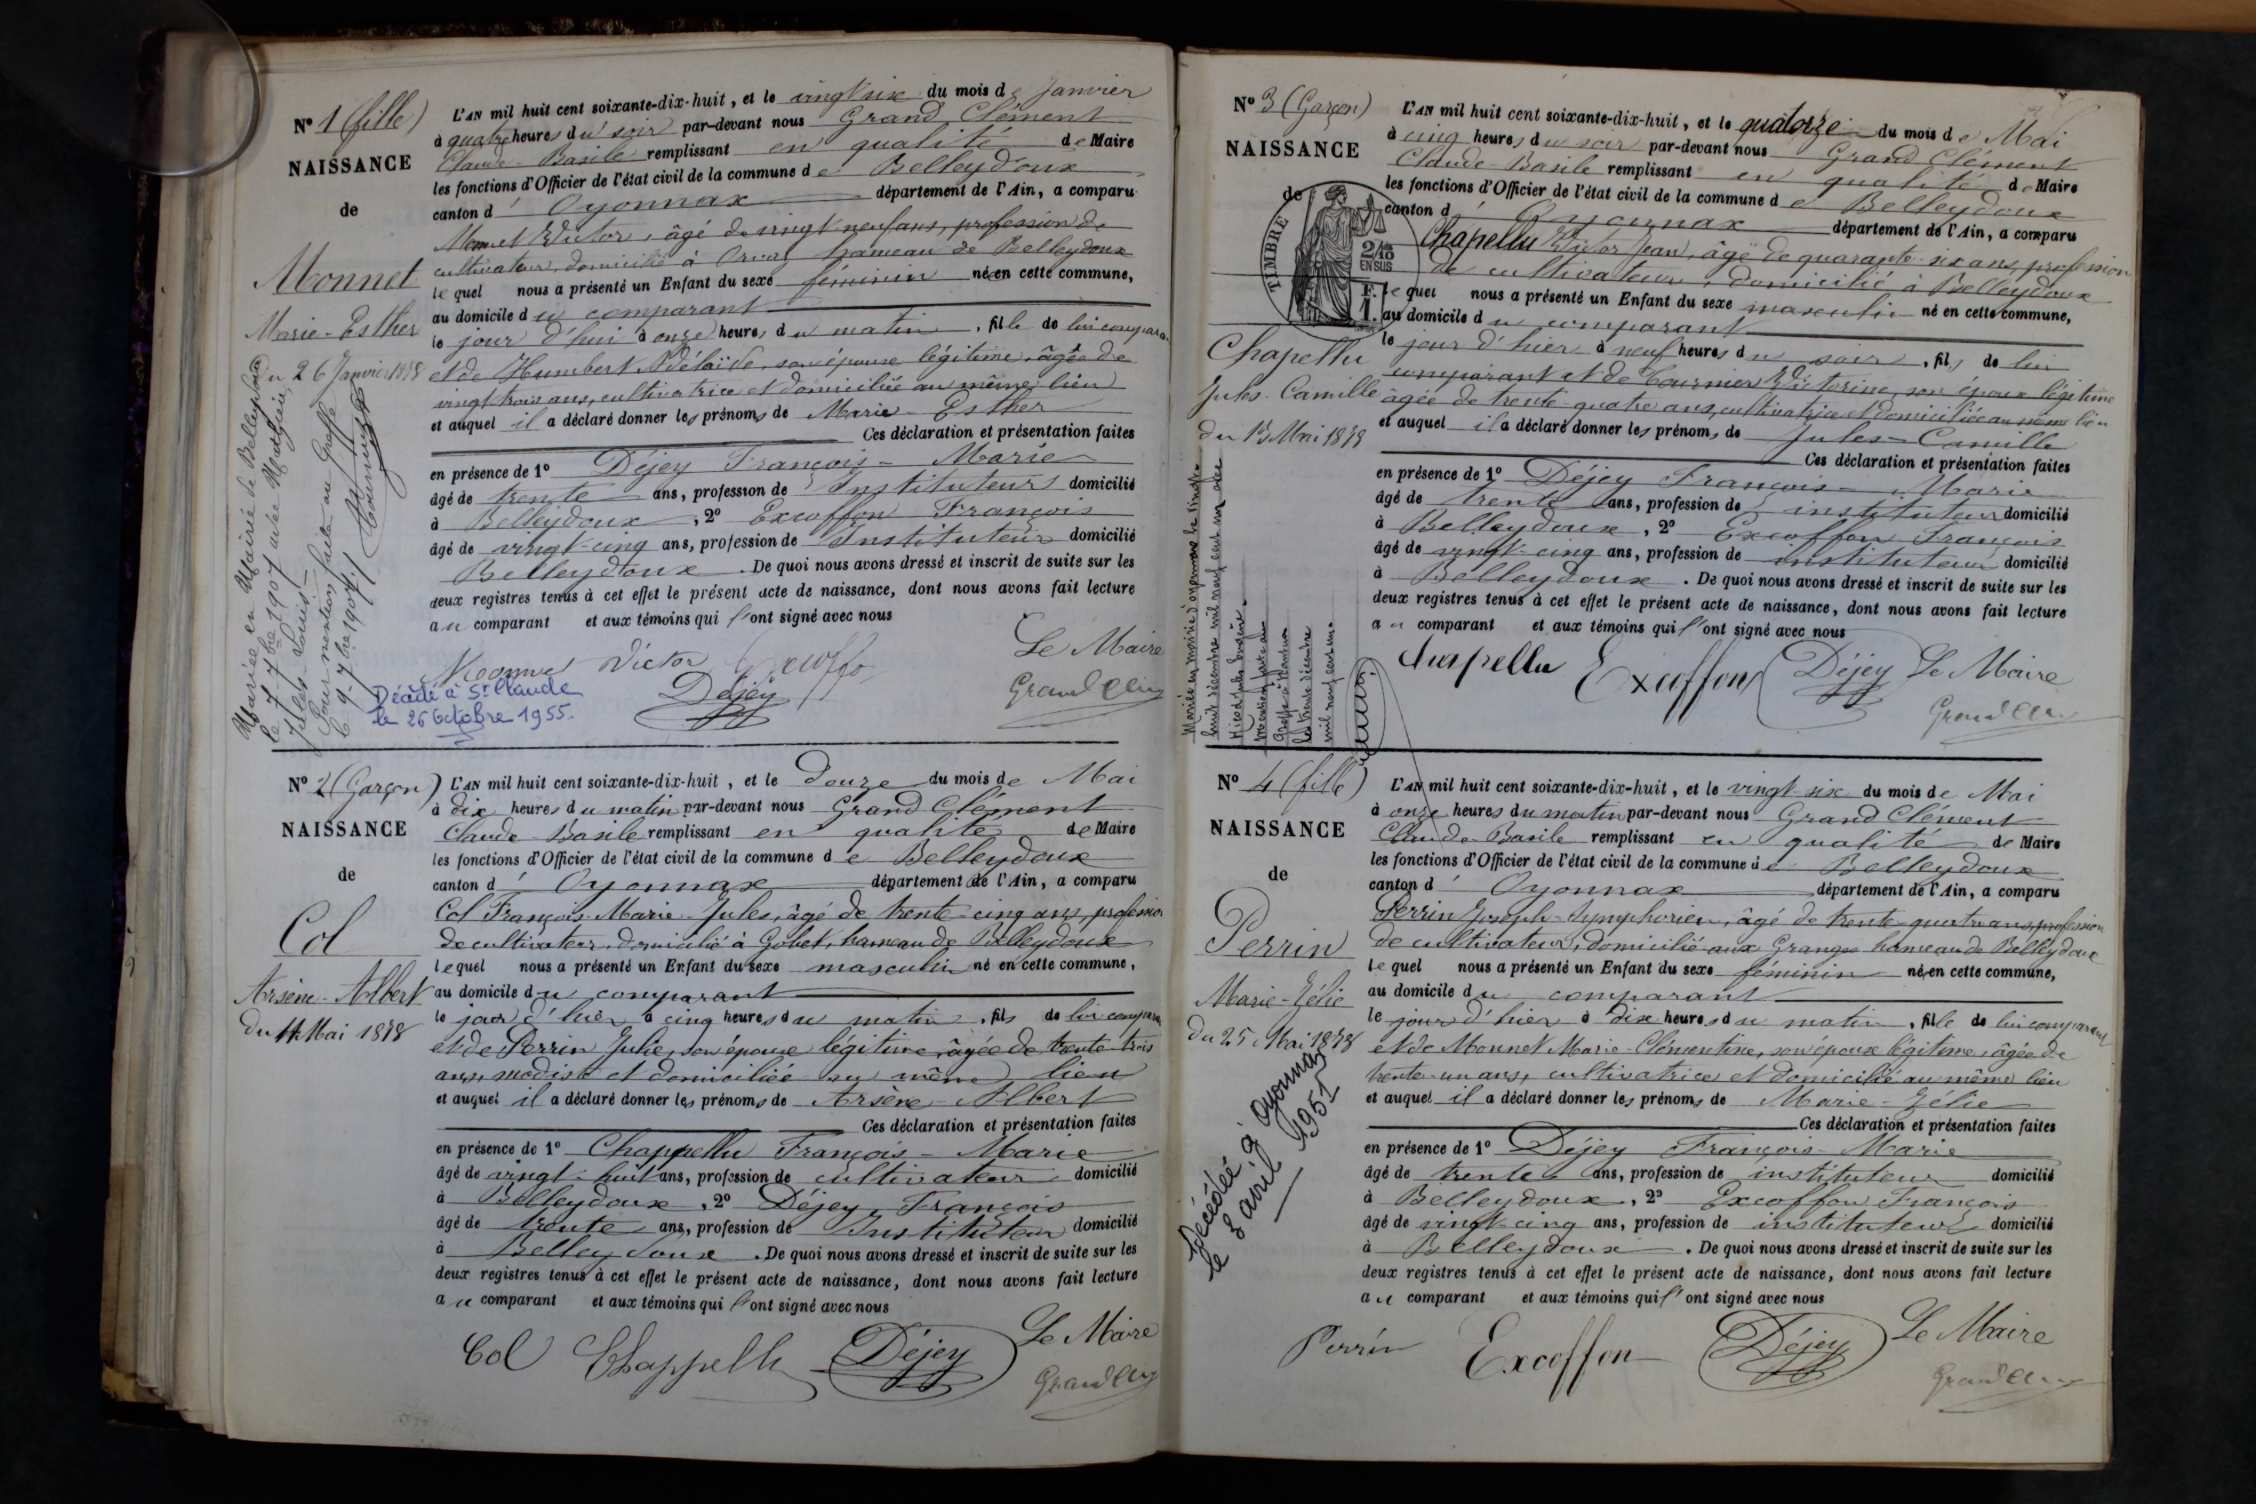 N° 1 (fille)
NAISSANCE
de
Monnet
Marie-Esther
du 26 Janvier 1878
Mariée en Mairie de Belleydoux
le 7 7bre 1907 avec
Jules-Louis
Pour mention faite au Greffe
le 9-7bre 1907
L'AN mil huit cent soixante-dix-huit, et le vingt six du mois de Janvier
à quatre heures du soir par-devant nous Grand Clément
Claude-Basile remplissant en qualité de Maire
les fonctions d'Officier de l'état civil de la commune de Belleydoux
canton d' Oyonnax département de l'Ain, a comparu
Monnet Victor, âgé de vingt neuf ans, profession de
cultivateur, domicilié à Orvaz hameau de Belleydoux
lequel nous a présenté un Enfant du sexe féminin né en cette commune,
au domicile du comparant
le jour d'hui à onze heures du matin, fille de lui comparant
et de Humbert Adélaïde, son épouse légitime, âgée de
vingt trois ans, cultivatrice et domiciliée au même lieu
et auquel il a déclaré donner les prénoms de Marie-Esther
Ces déclaration et présentation faites
en présence de 1° Déjey François-Marie
âgé de trente ans, profession de Instituteurs domicilié
à Belleydoux, 2° Excoffon François
âgé de vingt-cinq ans, profession de Instituteur domicilié
Belleydoux. De quoi nous avons dressé et inscrit de suite sur les
deux registres tenus à cet effet le présent acte de naissance, dont nous avons fait lecture
au comparant et aux témoins qui l'ont signé avec nous
Monnet Victor Excoffon Le Maire
Déjey Grand Clém
Décédé à St Claude
le 26 Octobre 1955.
N° 2 (Garçon)
NAISSANCE
de
Col
Arsène-Albert
du 11 Mai 1878
L'AN mil huit cent soixante-dix-huit, et le douze du mois de Mai
à dix heures du matin par-devant nous Grand Clément
Claude-Basile remplissant en qualité de Maire
les fonctions d'Officier de l'état civil de la commune de Belleydoux
canton d' Oyonnax département de l'Ain, a comparu
Col François-Marie-Jules, âgé de trente-cinq ans, profession
de cultivateur, domicilié à Gobet, hameau de Belleydoux
lequel nous a présenté un Enfant du sexe masculin né en cette commune,
au domicile du comparant
le jour d'hier à cinq heures du matin, fils de lui comparant
et de Perrin Julie, son épouse légitime, âgée de trente-trois
ans, modiste et domiciliée au même lieu
et auquel il a déclaré donner les prénoms de Arsène-Albert
Ces déclaration et présentation faites
en présence de 1° Chappellu François-Marie
âgé de vingt-huit ans, profession de cultivateur domicilié
à Belleydoux, 2° Déjey, François
âgé de trente ans, profession de Instituteur domicilié
à Belleydoux. De quoi nous avons dressé et inscrit de suite sur les
deux registres tenus à cet effet le présent acte de naissance, dont nous avons fait lecture
au comparant et aux témoins qui l'ont signé avec nous
Col Chappellu Déjey Le Maire
Grand Clém
N° 3 (Garçon)
NAISSANCE
de
TIMBRE
2/10
EN SUS
F. 1.
Chapellu
Jules-Camille
du 13 Mai 1878
Mariée en mairie d'oyonnax le
huit décembre mil neuf cent un avec
Nicod Julie
mention faite au
greffe à Nantua
le trente décembre
mil neuf cent un.
L'AN mil huit cent soixante-dix-huit, et le quatorze du mois de Mai
à cinq heures du soir par-devant nous Grand Clément
Claude-Basile remplissant en qualité de Maire
les fonctions d'Officier de l'état civil de la commune de Belleydoux
canton d' Oyonnax département de l'Ain, a comparu
Chapellu Victor Jean, âgé de quarante-six ans, profession
de cultivateur, domicilié à Belleydoux
lequel nous a présenté un Enfant du sexe masculin né en cette commune,
au domicile du comparant
le jour d'hier à neuf heures du soir, fils de lui
comparant et de Tournier Victorine, son épouse légitime
âgée de trente-quatre ans, cultivatrice et domiciliée au même lieu
et auquel il a déclaré donner les prénoms de Jules-Camille
Ces déclaration et présentation faites
en présence de 1° Déjey François-Marie
âgé de trente ans, profession de instituteur domicilié
à Belleydoux, 2° Excoffon François
âgé de vingt-cinq ans, profession de instituteur domicilié
à Belleydoux. De quoi nous avons dressé et inscrit de suite sur les
deux registres tenus à cet effet le présent acte de naissance, dont nous avons fait lecture
au comparant et aux témoins qui l'ont signé avec nous
Chapellu Excoffon Déjey Le Maire
Grand Clém
N° 4 (fille)
NAISSANCE
de
Perrin
Marie-Zélie
du 25 Mai 1878
Décédée à Oyonnax
le 8 avril 1951
L'AN mil huit cent soixante-dix-huit, et le vingt six du mois de Mai
à onze heures du matin par-devant nous Grand Clément
Claude-Basile remplissant en qualité de Maire
les fonctions d'Officier de l'état civil de la commune de Belleydoux
canton d' Oyonnax département de l'Ain, a comparu
Perrin Joseph-Symphorien, âgé de trente-quatre ans, profession
de cultivateur, domicilié aux Granges hameau de Belleydoux
lequel nous a présenté un Enfant du sexe féminin né en cette commune,
au domicile du comparant
le jour d'hier à dix heures du matin, fille de lui comparant
et de Monnet Marie-Clémentine, son épouse légitime, âgée de
trente-un ans, cultivatrice et domiciliée au même lieu
et auquel il a déclaré donner les prénoms de Marie-Zélie
Ces déclaration et présentation faites
en présence de 1° Déjey François-Marie
âgé de trente ans, profession de instituteur domicilié
à Belleydoux, 2° Excoffon François
âgé de vingt-cinq ans, profession de instituteur domicilié
à Belleydoux. De quoi nous avons dressé et inscrit de suite sur les
deux registres tenus à cet effet le présent acte de naissance, dont nous avons fait lecture
au comparant et aux témoins qui l'ont signé avec nous
Perrin Excoffon Déjey Le Maire
Grand Clém